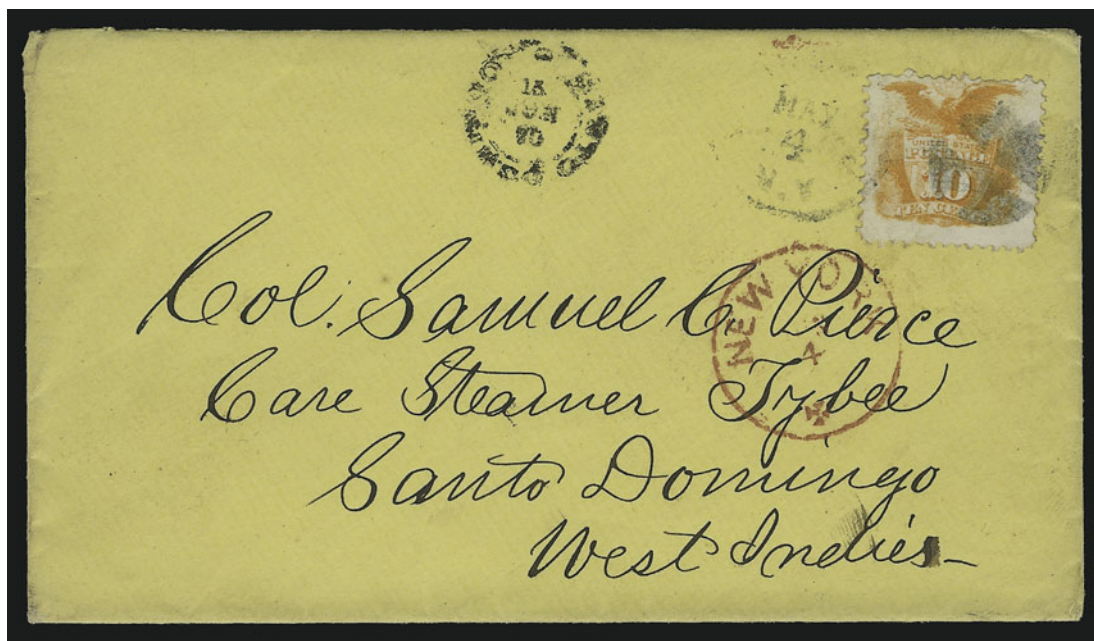 15
70
MAY
4
N.Y.
UNITED STATES
POSTAGE
10
TEN CENTS
NEW YORK
4
Col. Samuel C. Pierce
Care Steamer Tybee
Santo Domingo
West Indies